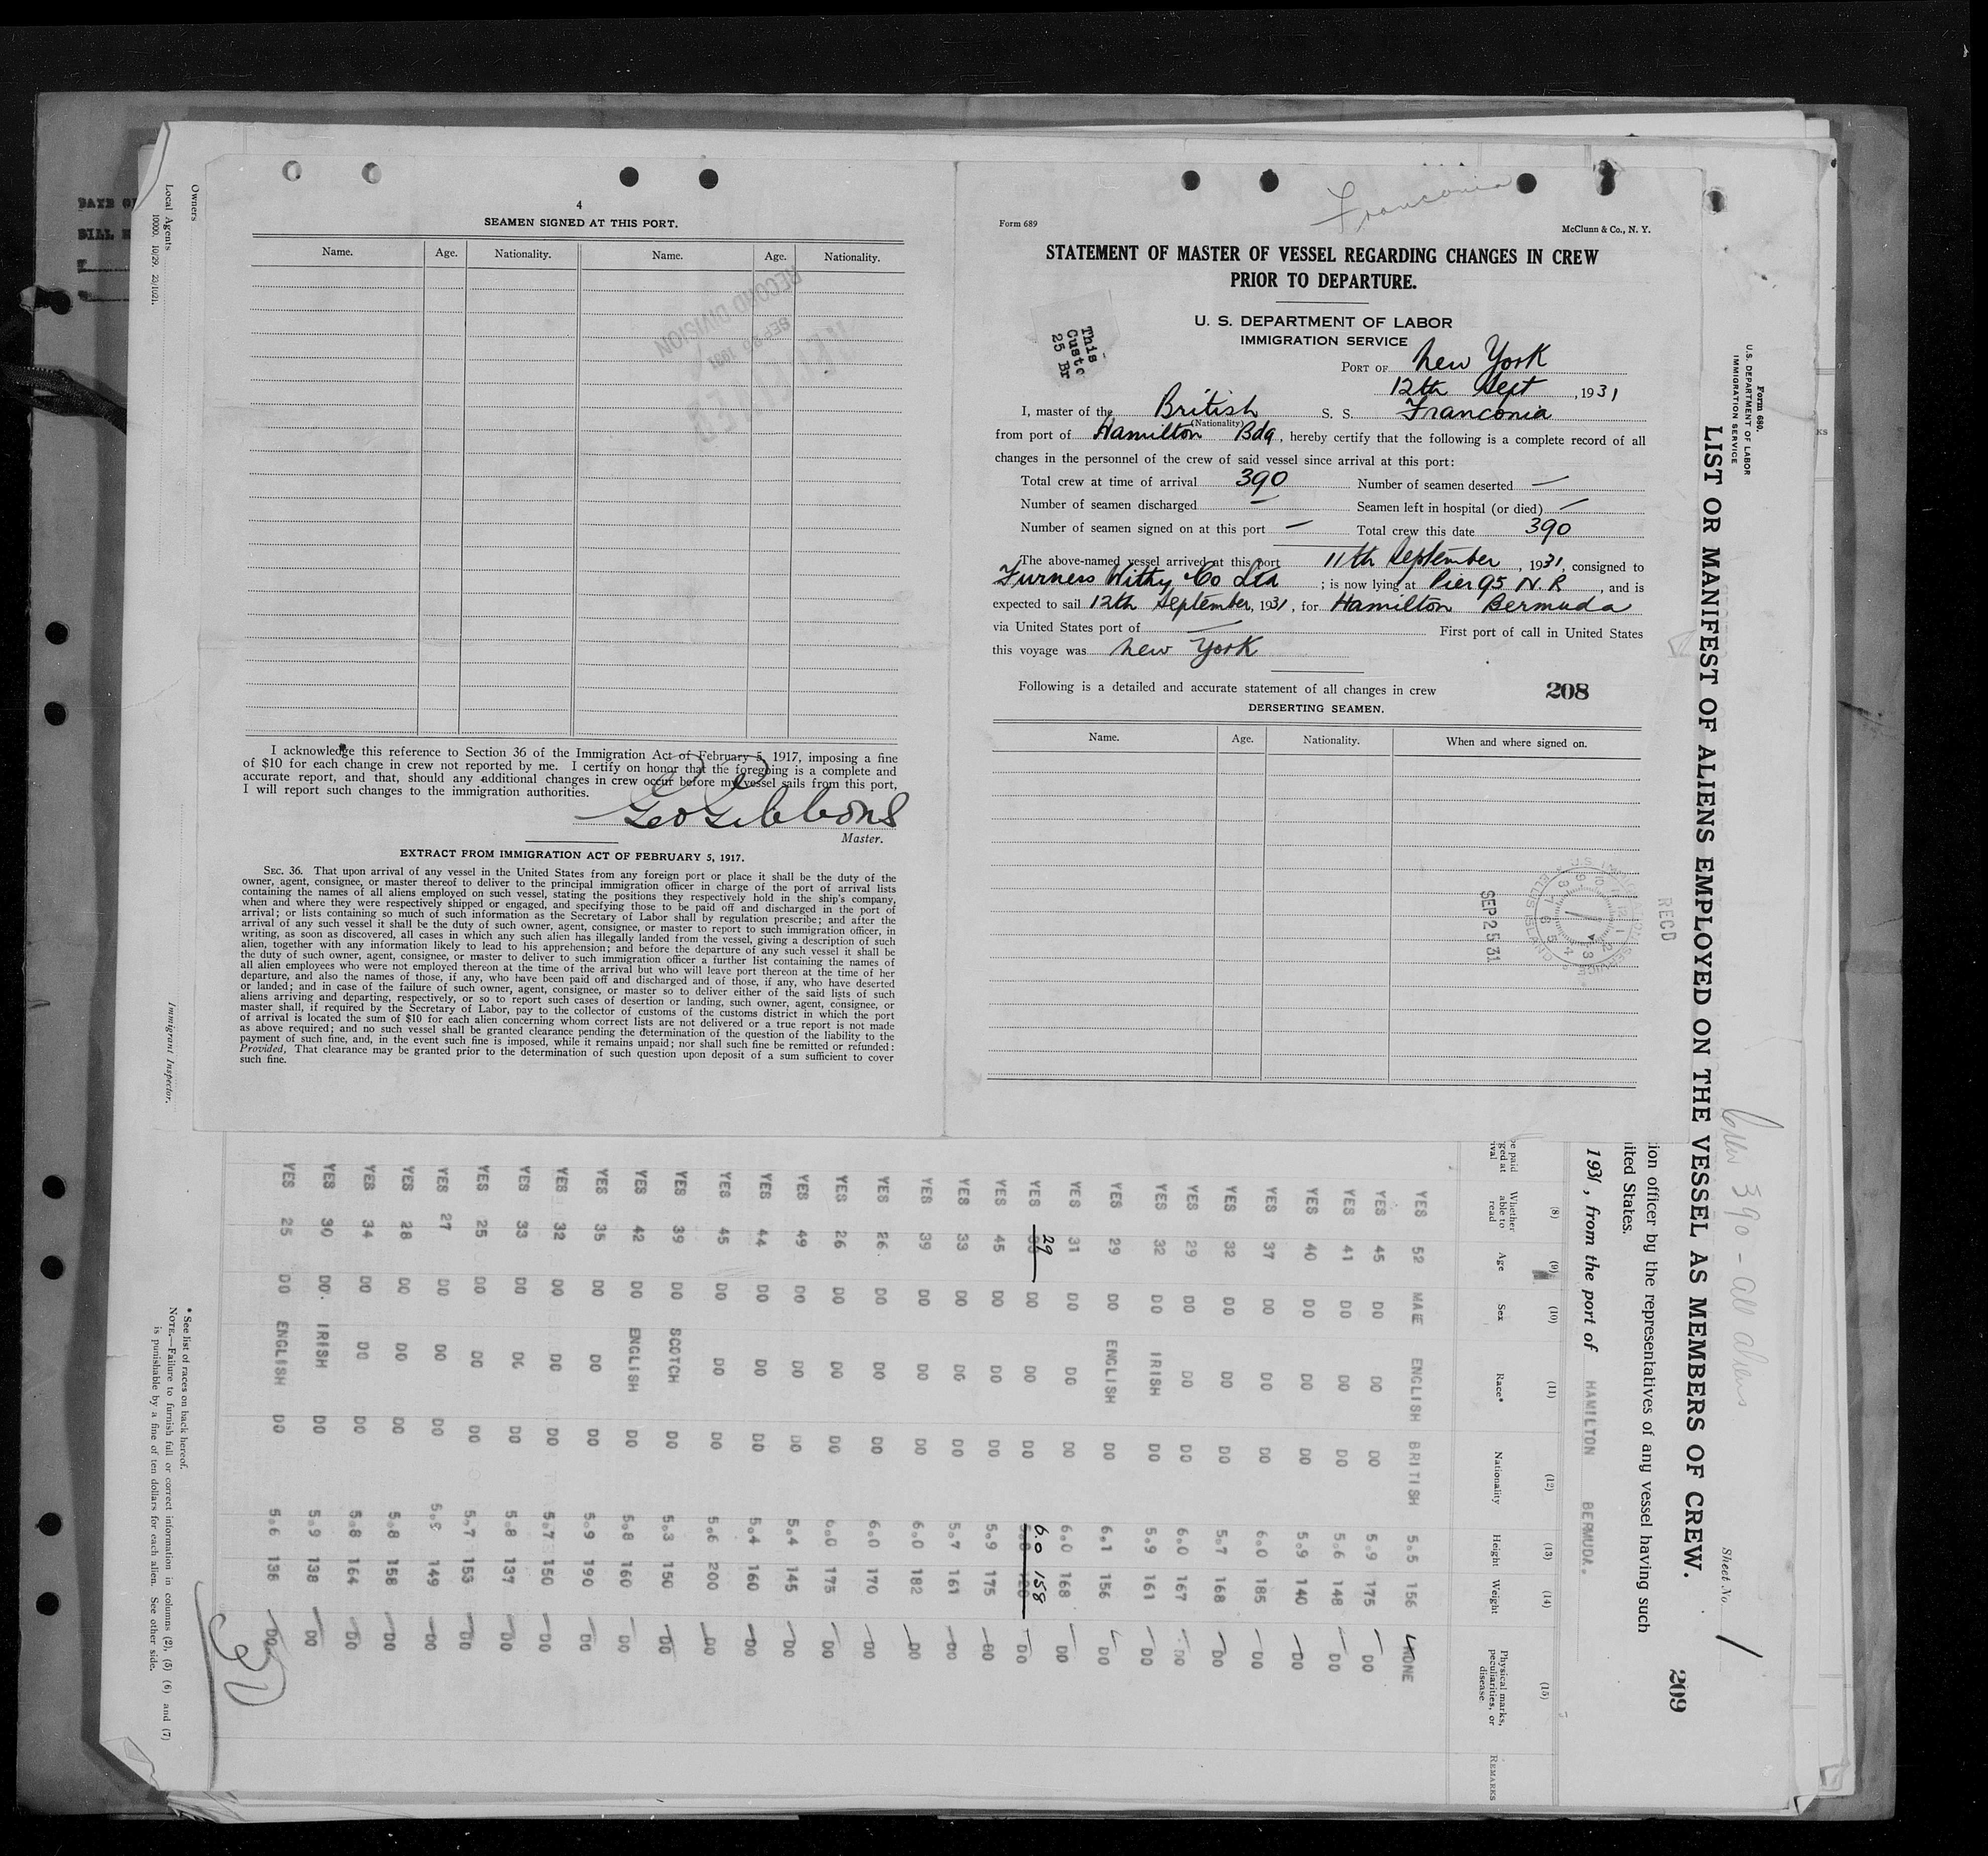 4
SEAMEN SIGNED AT THIS PORT.
Name. Age. Nationality. Name. Age. Nationality.
RECORD DIVISION
I acknowledge this reference to Section 36 of the Immigration Act of February 5, 1917, imposing a fine
of $10 for each change in crew not reported by me. I certify on honor that the foregoing is a complete and
accurate report, and that, should any additional changes in crew occur before my vessel sails from this port,
I will report such changes to the immigration authorities.
Geo Gibbons
Master.
EXTRACT FROM IMMIGRATION ACT OF FEBRUARY 5, 1917.
SEC. 36. That upon arrival of any vessel in the United States from any foreign port or place it shall be the duty of the
owner, agent, consignee, or master thereof to deliver to the principal immigration officer in charge of the port of arrival lists
containing the names of all aliens employed on such vessel, stating the positions they respectively hold in the ship's company,
when and where they were respectively shipped or engaged, and specifying those to be paid off and discharged in the port of
arrival; or lists containing so much of such information as the Secretary of Labor shall by regulation prescribe; and after the
arrival of any such vessel it shall be the duty of such owner, agent, consignee, or master to report to such immigration officer, in
writing, as soon as discovered, all cases in which any such alien has illegally landed from the vessel, giving a description of such
alien, together with any information likely to lead to his apprehension; and before the departure of any such vessel it shall be
the duty of such owner, agent, consignee, or master to deliver to such immigration officer a further list containing the names of
all alien employees who were not employed thereon at the time of the arrival but who will leave port thereon at the time of her
departure, and also the names of those, if any, who have been paid off and discharged and of those, if any, who have deserted
or landed; and in case of the failure of such owner, agent, consignee, or master so to deliver either of the said lists of such
aliens arriving and departing, respectively, or so to report such cases of desertion or landing, such owner, agent, consignee, or
master shall, if required by the Secretary of Labor, pay to the collector of customs of the customs district in which the port
of arrival is located the sum of $10 for each alien concerning whom correct lists are not delivered or a true report is not made
as above required; and no such vessel shall be granted clearance pending the determination of the question of the liability to the
payment of such fine, and, in the event such fine is imposed, while it remains unpaid; nor shall such fine be remitted or refunded:
Provided, That clearance may be granted prior to the determination of such question upon deposit of a sum sufficient to cover
such fine.
Franconia
Form 689
McClunn & Co., N. Y.
STATEMENT OF MASTER OF VESSEL REGARDING CHANGES IN CREW
PRIOR TO DEPARTURE.
U. S. DEPARTMENT OF LABOR
IMMIGRATION SERVICE
This
Custo
25 Br
PORT OF New York
12th Sept, 1931
I, master of the British S. S. Franconia
(Nationality)
from port of Hamilton Bda, hereby certify that the following is a complete record of all
changes in the personnel of the crew of said vessel since arrival at this port:
Total crew at time of arrival 390 Number of seamen deserted —
Number of seamen discharged — Seamen left in hospital (or died) —
Number of seamen signed on at this port — Total crew this date 390
The above-named vessel arrived at this port 11th September, 1931, consigned to
Furness Withy & Co Ltd ; is now lying at Pier 95 N. R, and is
expected to sail 12th September, 1931, for Hamilton Bermuda
via United States port of — First port of call in United States
this voyage was New York
Following is a detailed and accurate statement of all changes in crew 208
DERSERTING SEAMEN.
Name. Age. Nationality. When and where signed on.
SEP 25 31
RECD
Form 680.
U.S. DEPARTMENT OF LABOR
IMMIGRATION SERVICE
LIST OR MANIFEST OF ALIENS EMPLOYED ON THE VESSEL AS MEMBERS OF CREW.
Crew 390 - All aliens
Sheet No. 1
209
ion officer by the representatives of any vessel having such
ited States.
1931, from the port of HAMILTON BERMUDA.
(8) (9) (10) (11) (12) (13) (14) (15)
Whether able to read Age Sex Race* Nationality Height Weight Physical marks, peculiarities, or disease REMARKS
YES 52 MALE ENGLISH BRITISH 5.5 156 NONE
YES 45 DO DO DO 5.9 175 DO
YES 41 DO DO DO 5.6 148 DO
YES 40 DO DO DO 5.9 140 DO
YES 37 DO DO DO 6.0 185 DO
YES 32 DO DO DO 5.7 168 DO
YES 29 DO DO DO 6.0 167 DO
YES 32 DO IRISH DO 5.9 161 DO
YES 29 DO ENGLISH DO 6.1 156 DO
YES 31 DO DO DO 6.0 168 DO
YES 29 DO DO DO 6.0 158 DO
YES 45 DO DO DO 5.9 175 DO
YES 33 DO DO DO 5.7 161 DO
YES 39 DO DO DO 6.0 182 DO
YES 26 DO DO DO 6.0 170 DO
YES 26 DO DO DO 6.0 175 DO
YES 49 DO DO DO 5.4 145 DO
YES 44 DO DO DO 5.4 160 DO
YES 45 DO DO DO 5.6 200 DO
YES 39 DO SCOTCH DO 5.3 150 DO
YES 42 DO ENGLISH DO 5.8 160 DO
YES 35 DO DO DO 5.9 190 DO
YES 32 DO DO DO 5.7 150 DO
YES 33 DO DO DO 5.8 137 DO
YES 25 DO DO DO 5.7 153 DO
YES 27 DO DO DO 149 DO
YES 28 DO DO DO 5.8 158 DO
YES 34 DO DO DO 5.8 164 DO
YES 30 DO. IRISH DO 5.9 138 DO
YES 25 DO ENGLISH DO 5.6 136 DO
* See list of races on back hereof.
NOTE.—Failure to furnish full or correct information in columns (2), (5) (6) and (7)
is punishable by a fine of ten dollars for each alien. See other side.
Owners
Local Agents
Immigrant Inspector.